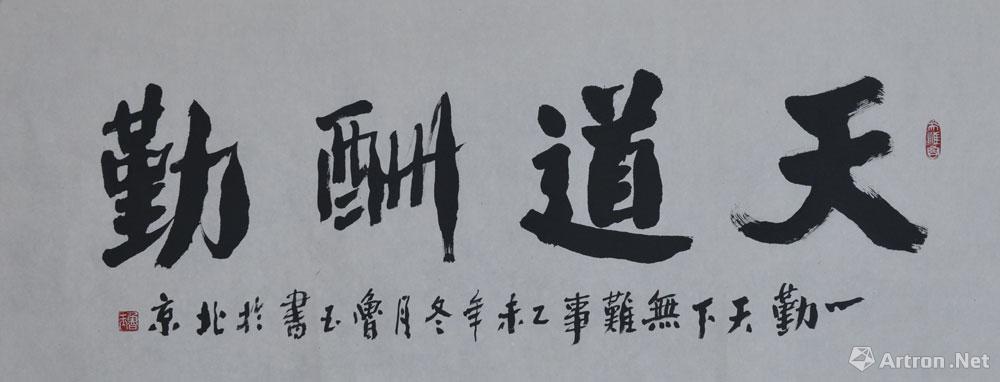 天道酬勤
一勤天下無難事乙未年冬月魯玉書於北京
Artron.Net